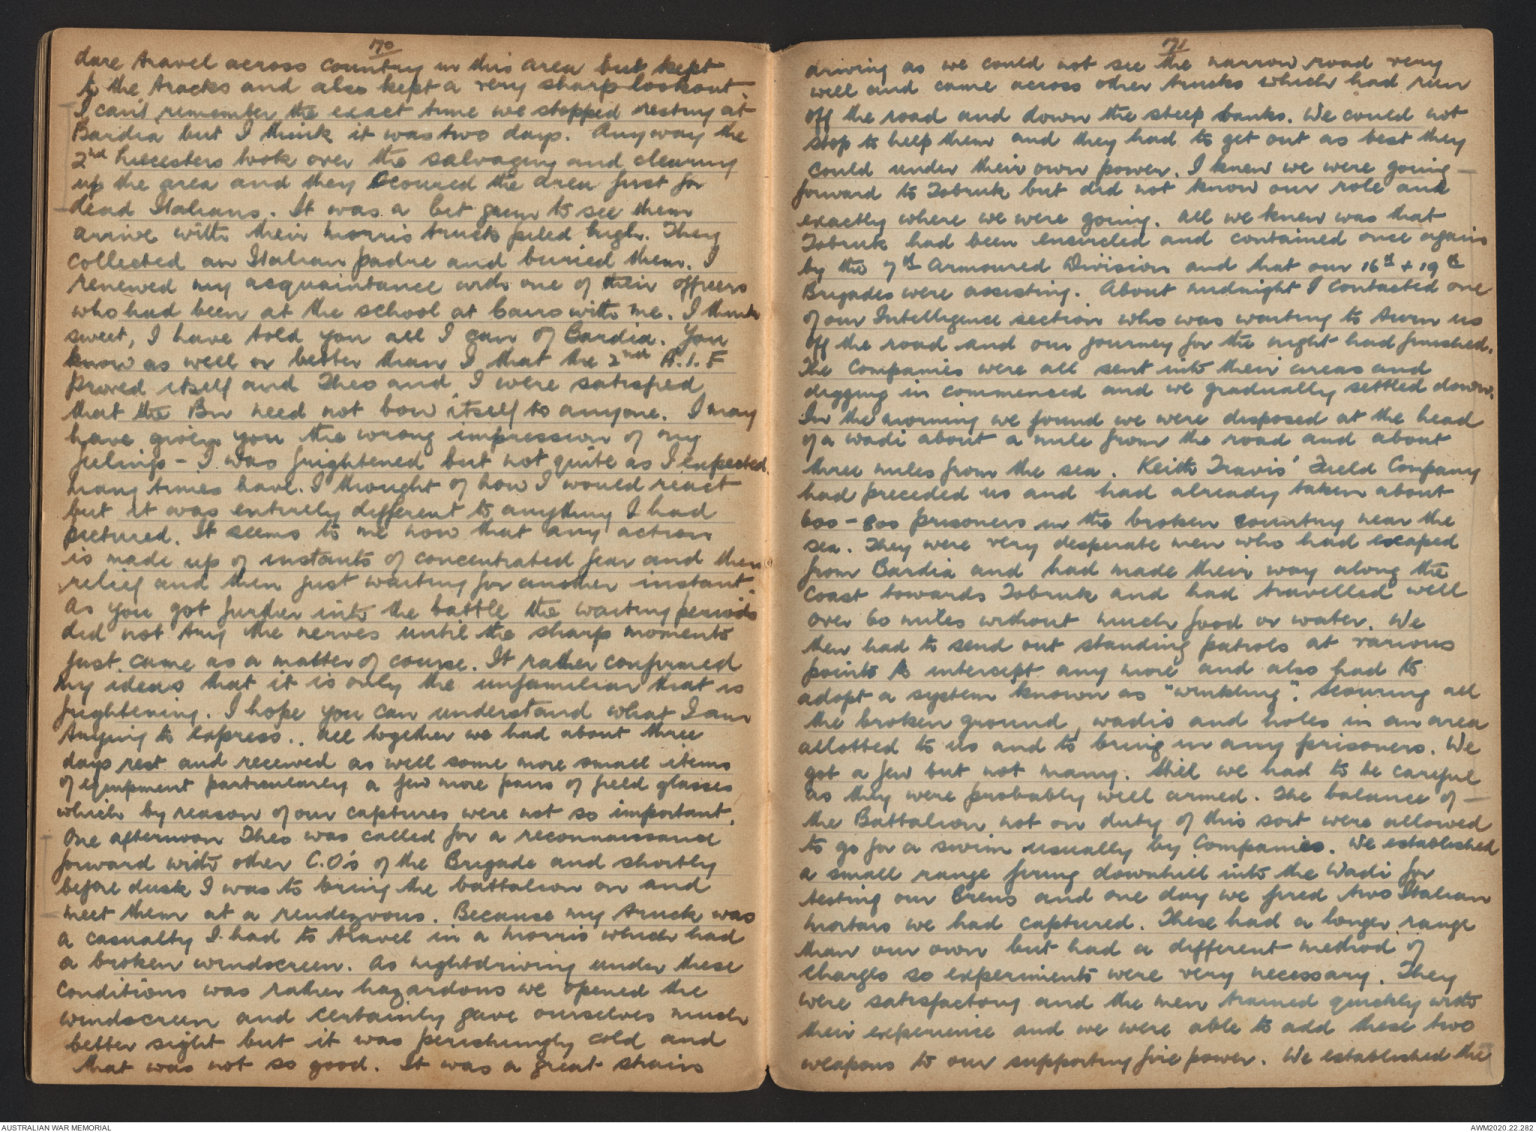 70
dare travel across country in this area but kept
to the tracks and also kept a very sharp lookout.
I can't remember the exact time we stopped resting at
Bardia but I think it was two days. Anyway the
2nd Leicesters took over the salvaging and clearing
up the area and they scoured the area just for
dead Italians. It was a bit grim to see them
arrive with their morris trucks piled high. They
collected an Italian padre and buried them. I
renewed my acquaintance with one of their officers
who had been at the school at Cairo with me. I think
sweet, I have told you all I can of Bardia. You
know as well or better than I that the 2nd A.I.F
proved itself and Theo and I were satisfied
that the Bn need not bow itself to anyone. I may
have given you the wrong impression of my
feelings - I was frightened but not quite as I expected
many times have I thought of how I would react
but it was entirely different to anything I had
pictured. It seems to me now that any action
is made up of instants of concentrated fear and then
relief and then just waiting for another instant.
As you got further into the battle the waiting periods
did not try the nerves until the sharp moments
just came as a matter of course. It rather confirmed
my ideas that it is only the unfamiliar that is
frightening. I hope you can understand what I am
trying to express.. All together we had about three
days rest and received as well some more small items
of equipment particularly a few more pairs of field glasses
which by reason of our captures were not so important.
One afternoon Theo was called for a reconnaissance
forward with other C.O's of the Brigade and shortly
before dusk I was to bring the battalion on and
meet them at a rendezvous. Because my truck was
a casualty I had to travel in a morris which had
a broken windscreen. As nightdriving under these
conditions was rather hazardous we opened the
windscreen and certainly gave ourselves much
better sight but it was perishingly cold and
that was not so good. It was a great strain
71
driving as we could not see the narrow road very
well and came across other trucks which had run
off the road and down the steep banks. We could not
stop to help them and they had to get out as best they
could under their own power. I knew we were going
forward to Tobruk but did not know our role and
exactly where we were going. All we knew was that
Tobruk had been encircled and contained once again
by the 7th Armoured Division and that our 16th & 19th
Brigades were assisting. About midnight I contacted one
of our Intelligence section who was waiting to turn us
off the road and our journey for the night had finished.
The Companies were all sent into their areas and
digging in commenced and we gradually settled down.
In the morning we found we were disposed at the head
of a wadi about a mile from the road and about
three miles from the sea. Keith Travis' Field Company
had preceded us and had already taken about
600 - 800 prisoners in the broken country near the
sea. They were very desperate men who had escaped
from Bardia and had made their way along the
coast towards Tobruk and had travelled well
over 60 miles without much food or water. We
then had to send out standing patrols at various
points to intercept any more and also had to
adopt a system known as "winkling". Scouring all
the broken ground, wadis and holes in an area
allotted to us and to bring in any prisoners. We
got a few but not many. Still we had to be careful
as they were probably well armed. The balance of
the Battalion not on duty of this sort were allowed
to go for a swim usually by Companies. We established
a small range firing downhill into the Wadi for
testing our Brens and one day we fired two Italian
mortars we had captured. These had a longer range
than our own but had a different method of
charges so experiments were very necessary. They
were satisfactory and the men trained quickly with
their experience and we were able to add these two
weapons to our supporting fire power. We established the
AUSTRALIAN WAR MEMORIAL
AWM2020.22.282